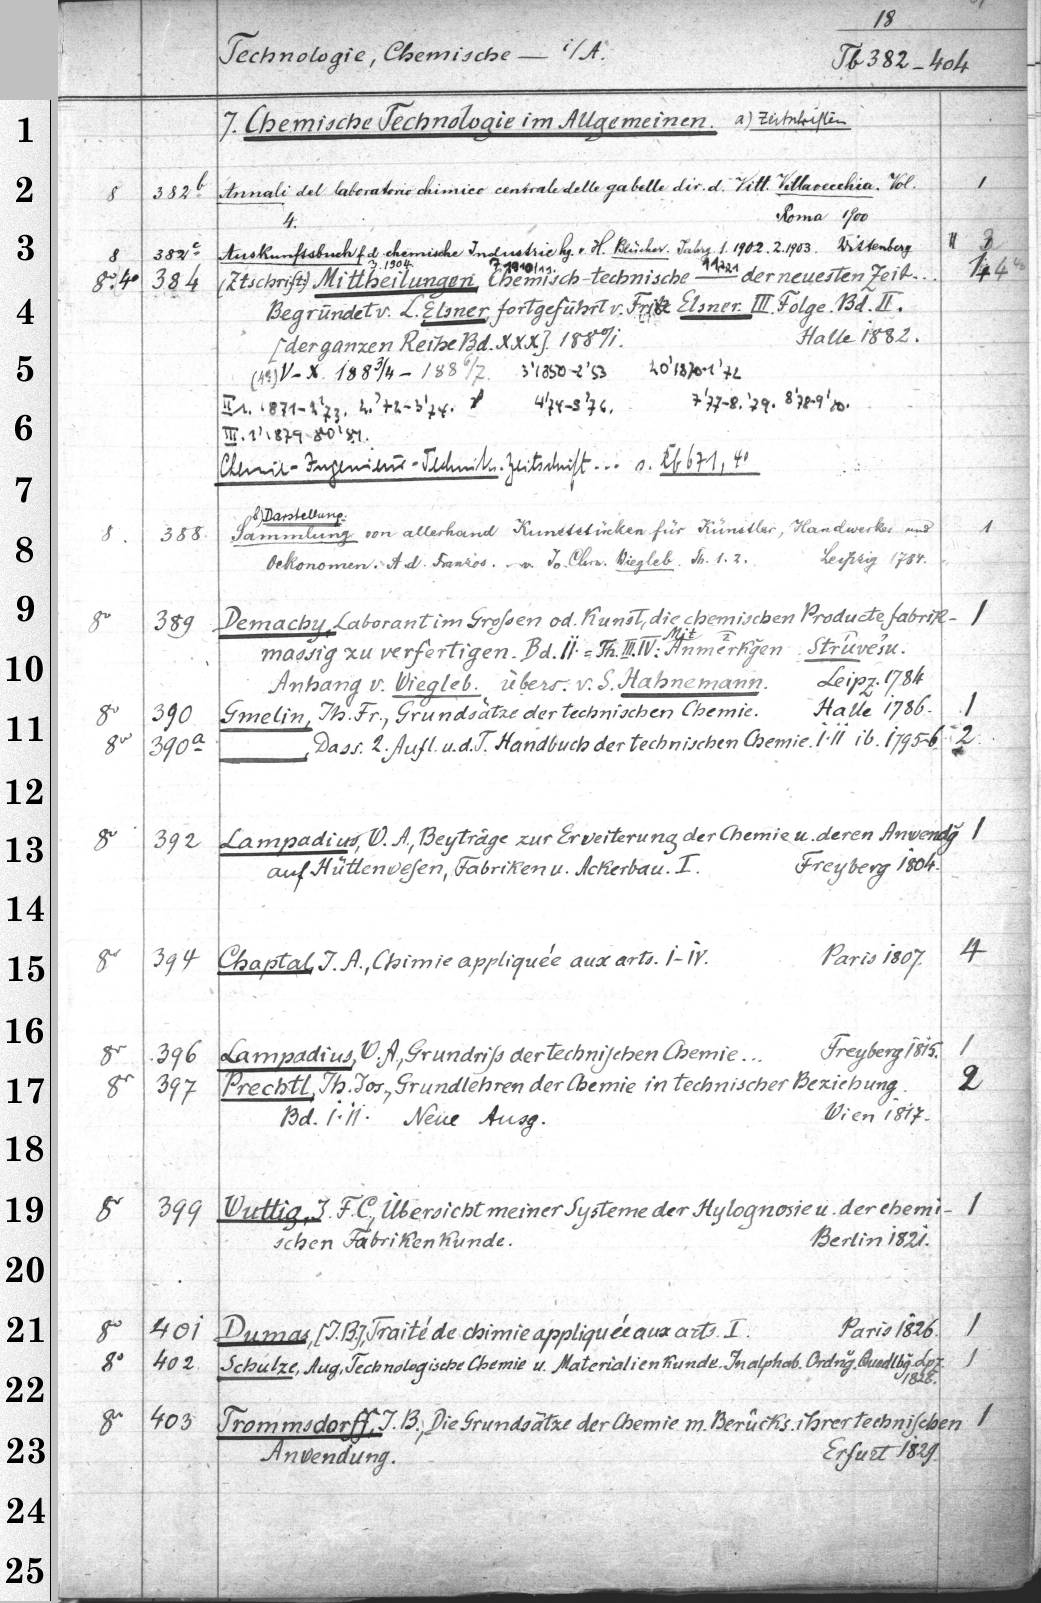 18
Technologie, Chemische — i/A.
Tb 382-404
1
7. Chemische Technologie im Allgemeinen. a) Zeitschriften
2
8 382b Annali del laboratorio chimico centrale delle gabelle dir. d. Vitt. Villavecchia. Vol. 1
4. Roma 1900
3
8 382c Auskunftsbuch f. d. chemische Industrie hg. v. H. Blücher. Jahrg. 1. 1902. 2. 1903. Wittenberg
3. 1904. 7. 1910/11. 11.1921
8o.4o 384 (Ztschrift) Mittheilungen, Chemisch-technische der neuesten Zeit... 44
4
Begründet v. L. Elsner, fortgeführt v. Fritz Elsner. III. Folge. Bd. II.
[der ganzen Reihe Bd. XXX]. 1880/1. Halle 1882.
5
V-X. 1883/4 - 1886/7. 3'1850-2'53 20'1870-1'72
II 1. 1871-2'73. 2.'72-3'74. 4'74-5'76. 7'77-8.'79. 8'78-9'80.
6
III. 1'1879-80'81.
Chemie-Ingenieur-Technik. Zeitschrift... s. 671, 4o
7
b) Darstellung.
8. 388 Sammlung von allerhand Kunststücken für Künstler, Handwerker und 1
8
Oekonomen. A. d. Französ. v. Jo. Chrn. Wiegleb. Th. 1. 2. Leipzig 1784.
9
8o 389 Demachy, Laborant im Großen od. Kunst, die chemischen Producte fabrik- 1
mässig zu verfertigen. Bd. II = Th. III. IV: Mit Anmerkgen Struve's u.
10
Anhang v. Wiegleb. übers. v. S. Hahnemann. Leipz. 1784
8o 390 Gmelin, Jh. Fr., Grundsätze der technischen Chemie. Halle 1786. 1
11
8o 390a ——, Dass. 2. Aufl. u. d. T. Handbuch der technischen Chemie. I.II ib. 1795-6 2
12
8o 392 Lampadius, W. A., Beyträge zur Erweiterung der Chemie u. deren Anwendg 1
13
auf Hüttenwesen, Fabriken u. Ackerbau. I. Freyberg 1804.
14
8o 394 Chaptal, J. A., Chimie appliquée aux arts. I-IV. Paris 1807. 4
15
16
8o 396 Lampadius, W. A., Grundriß der technischen Chemie... Freyberg 1815. 1
17
8o 397 Prechtl, Jh. Jos., Grundlehren der Chemie in technischer Beziehung. 2
Bd. I.II. Neue Ausg. Wien 1817.
18
19
8o 399 Wuttig, J. F. C., Übersicht meiner Systeme der Hylognosie u. der chemi- 1
schen Fabrikenkunde. Berlin 1821.
20
21
8o 401 Dumas, [J. B.], Traité de chimie appliquée aux arts. I. Paris 1826. 1
8o 402 Schulze, Aug., Technologische Chemie u. Materialienkunde. In alphab. Ordng. Quedlbg. Lpz. 1
22
1828.
8o 403 Trommsdorff, J. B., Die Grundsätze der Chemie m. Berücks. ihrer technischen 1
23
Anwendung. Erfurt 1829.
24
25